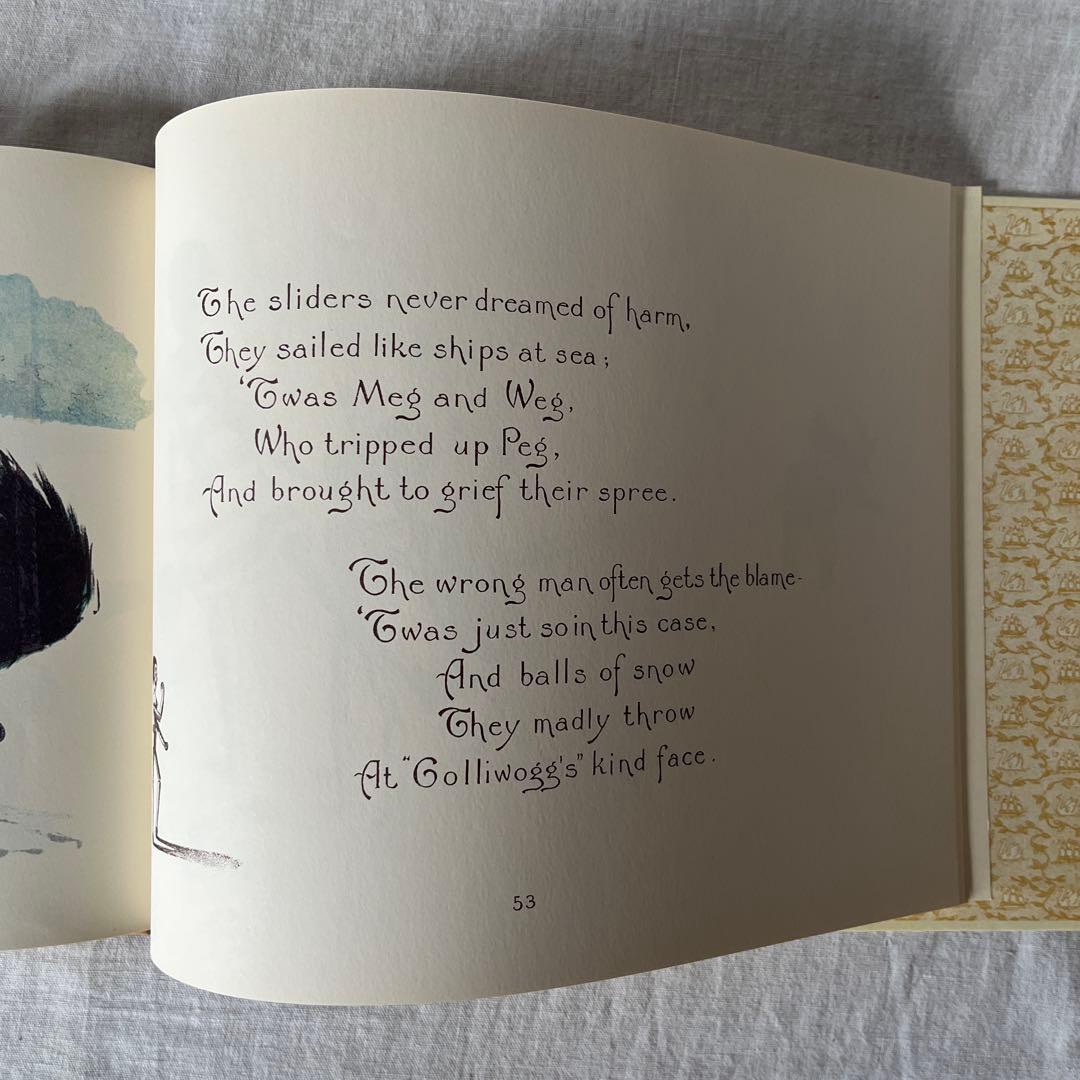 The sliders never dreamed of harm,
They sailed like ships at sea;
'Twas Meg and Weg,
Who tripped up Peg,
And brought to grief their spree.
The wrong man often gets the blame-
'Twas just so in this case,
And balls of snow
They madly throw
At "Golliwogg's" kind face.
53